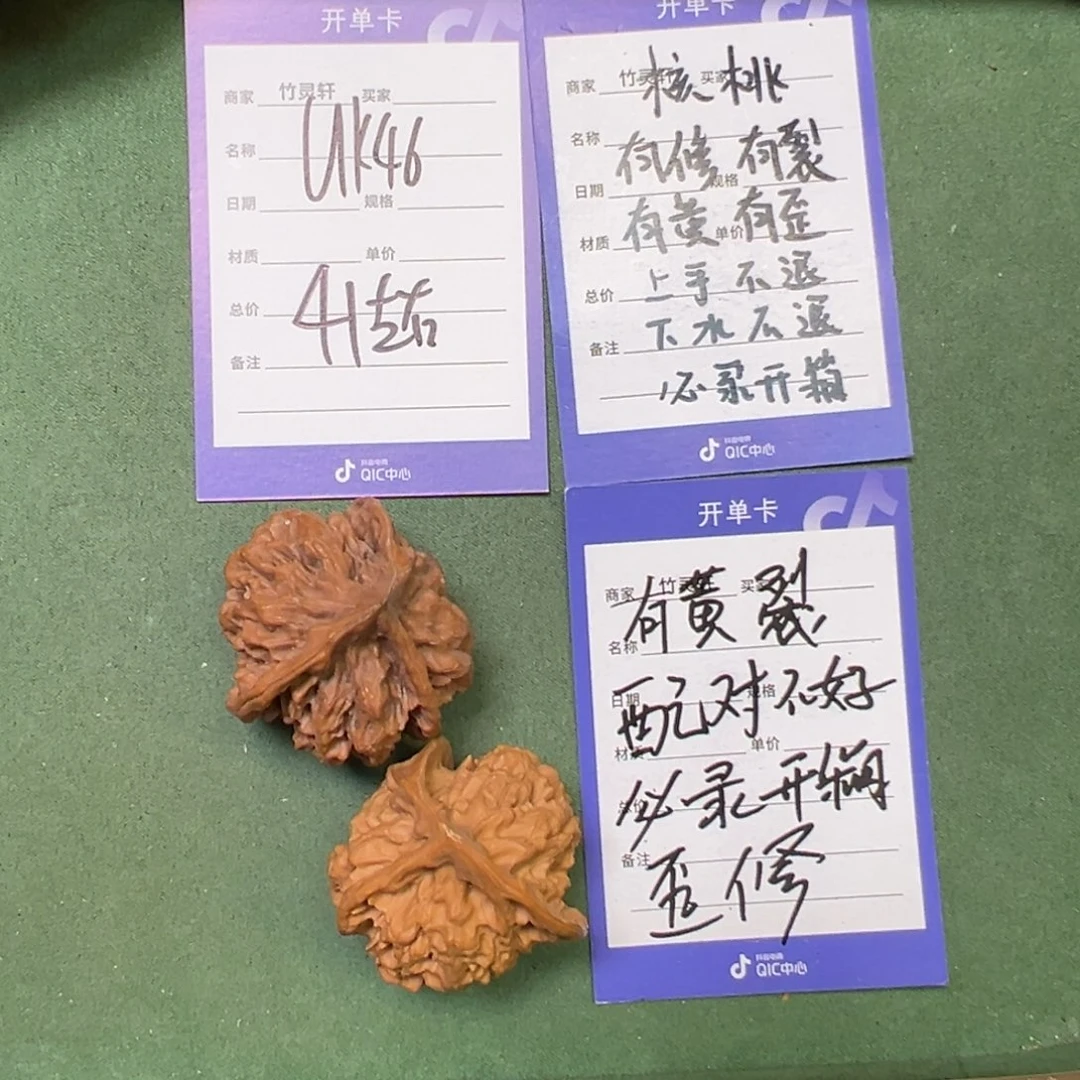 开单卡
商家 竹灵轩 买家
UK46
名称
日期 规格
材质 单价
总价
备注
抖音电商
QIC中心
开单卡
商家 竹灵轩 买家
核桃
名称
有修 有裂
日期 规格
有黄 有歪
材质 单价
上手不退
总价
下水不退
备注
必录开箱
抖音电商
QIC中心
开单卡
商家 竹灵轩 买
有黄裂
名称
日期 规格
配对不好
材质 单价
必录开箱
总价
备注
歪修
抖音电商
QIC中心